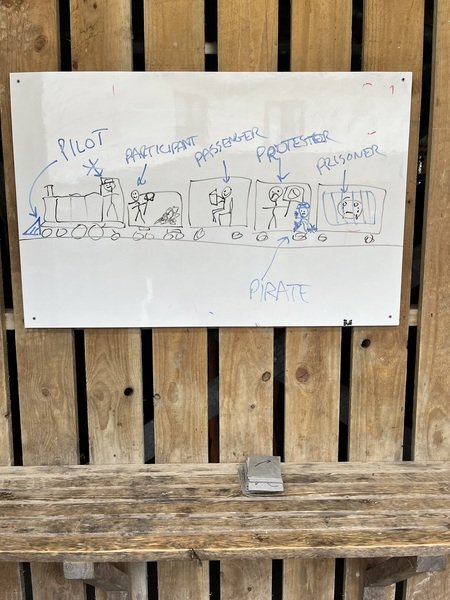 PILOT
PARTICIPANT
PASSENGER
PROTESTER
PRISONER
PIRATE